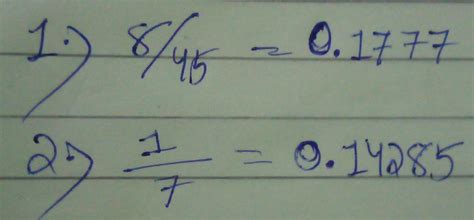 1.) 8/45 = 0.1777
2) 1/7 = 0.14285